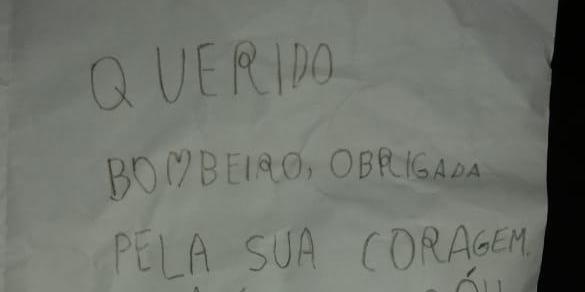 QUERIDO
BOMBEIRO, OBRIGADA
PELA SUA CORAGEM.